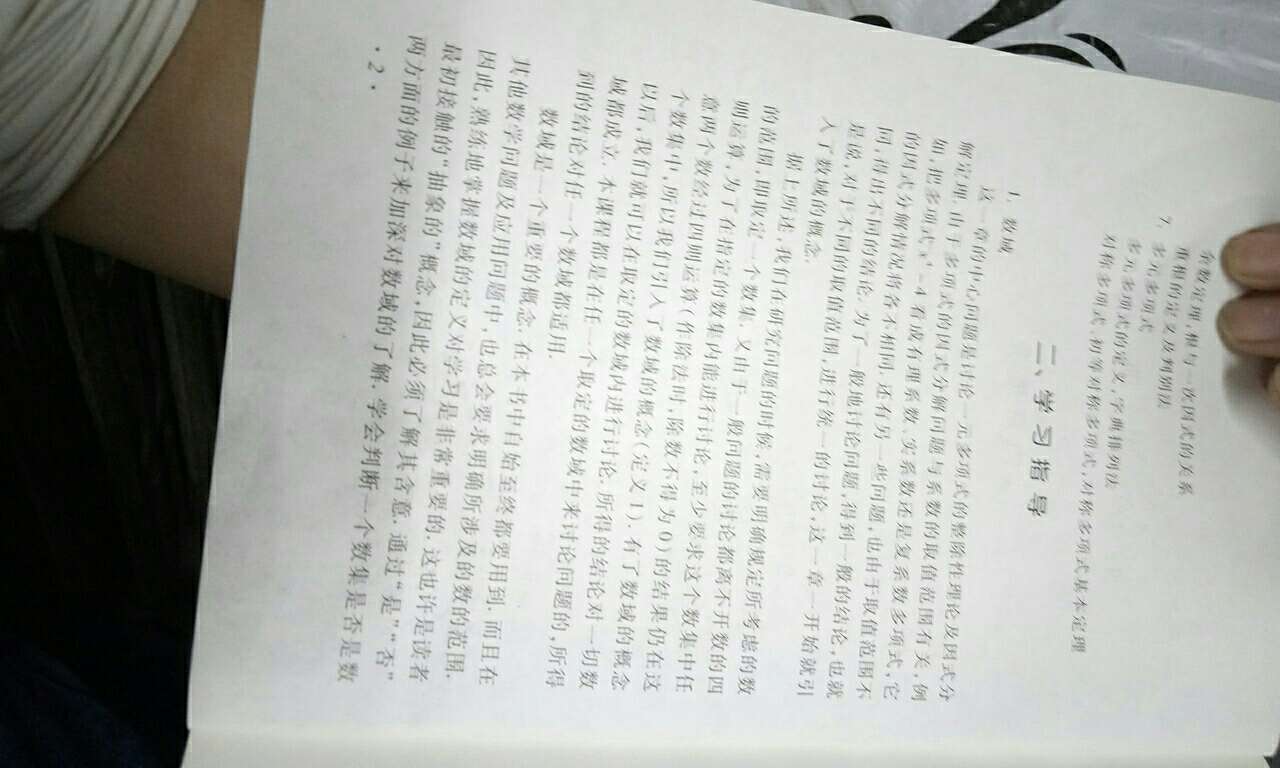 余数定理,根与一次因式的关系
重根的定义及判别法
7. 多元多项式
多元多项式的定义,字典排列法
对称多项式,初等对称多项式,对称多项式基本定理
二、学习指导
1. 数域
这一章的中心问题是讨论一元多项式的整除性理论及因式分
解定理. 由于多项式的因式分解问题与系数的取值范围有关,例
如,把多项式x⁴-4看成有理系数、实系数还是复系数多项式,它
的因式分解情况将各不相同,还有另一些问题,也由于取值范围不
同,得出不同的结论. 为了一般地讨论问题,得到一般的结论,也就
是说,对于不同的取值范围,进行统一的讨论,这一章一开始就引
入了数域的概念.
据上所述,我们在研究问题的时候,需要明确规定所考虑的数
的范围,即取定一个数集. 又由于一般问题的讨论都离不开数的四
则运算,为了在指定的数集内能进行讨论,至少要求这个数集中任
意两个数经过四则运算(作除法时,除数不得为0)的结果仍在这
个数集中,所以我们引入了数域的概念(定义1). 有了数域的概念
以后,我们就可以在取定的数域内进行讨论. 所得的结论对一切数
域都成立. 本课程都是在任一个取定的数域中来讨论问题的,所得
到的结论对任一个数域都适用.
数域是一个重要的概念. 在本书中自始至终都要用到. 而且在
其他数学问题及应用问题中,也总会要求明确所涉及的数的范围.
因此,熟练地掌握数域的定义对学习是非常重要的. 这也许是读者
最初接触的“抽象的”概念,因此必须了解其含意. 通过“是”“否”
两方面的例子来加深对数域的了解. 学会判断一个数集是否是数
· 2 ·